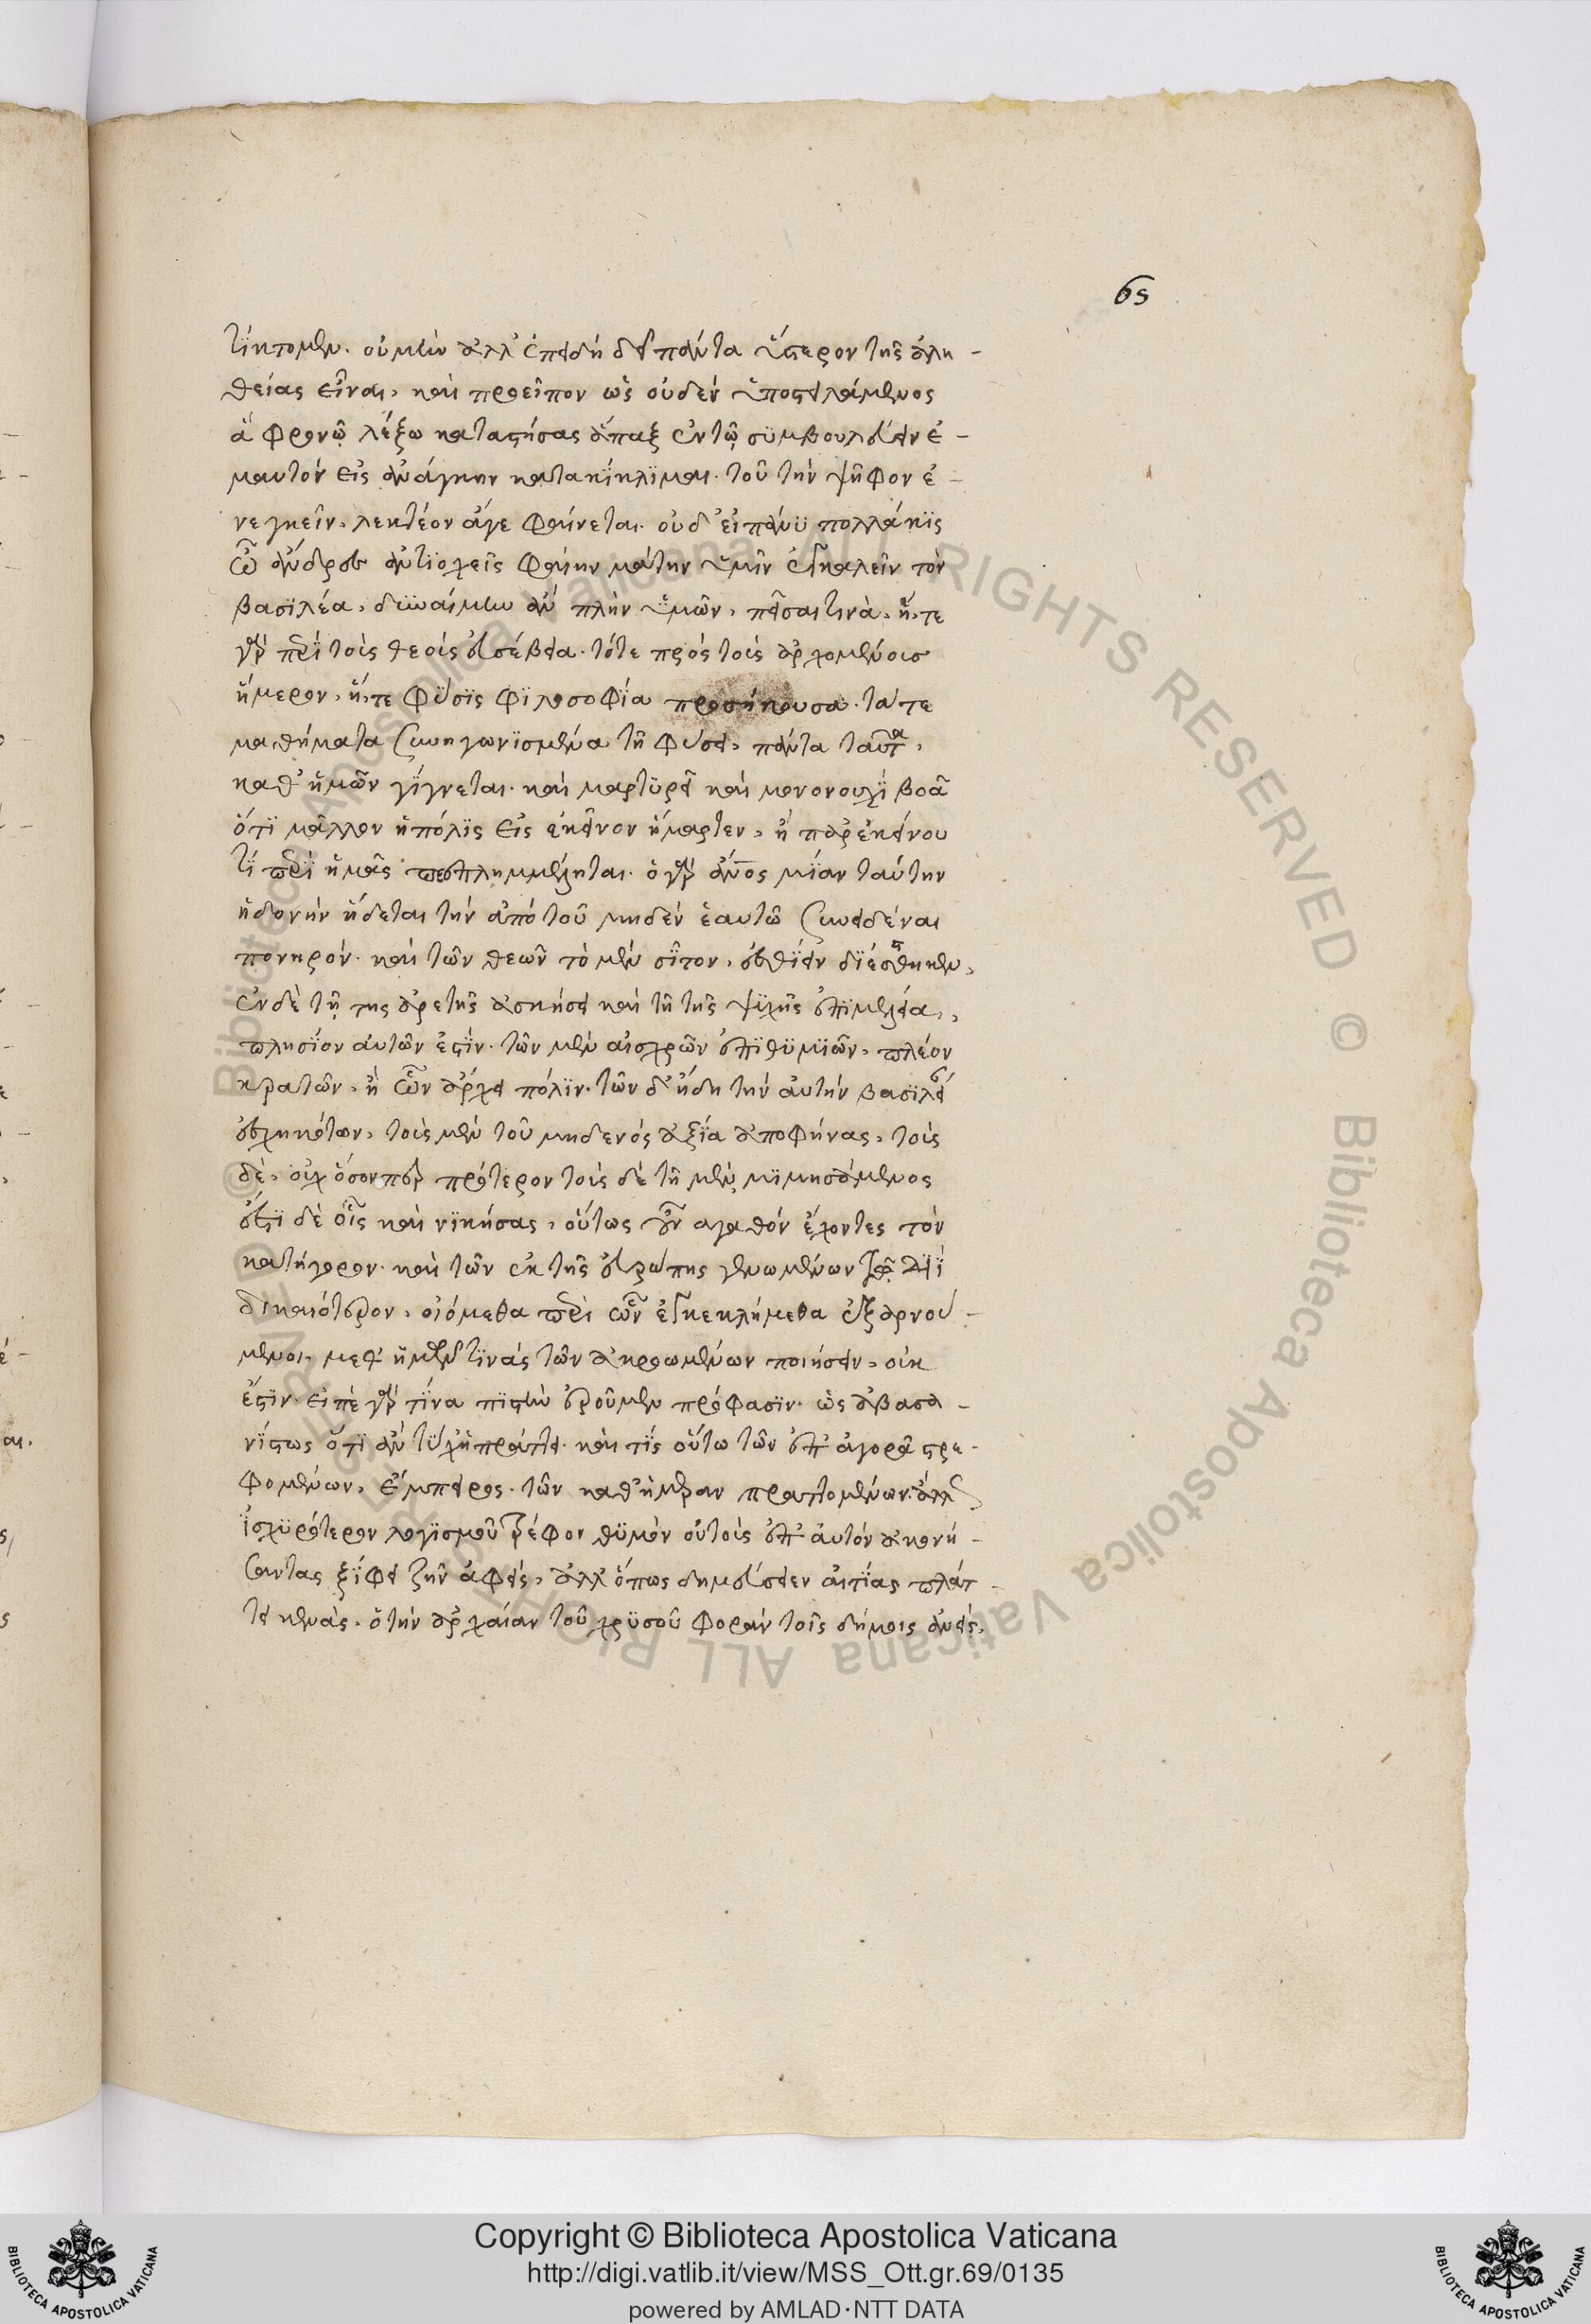 65
τίκτομεν. οὐ μὴν ἀλλ' ἐπειδὴ δεῖ πάντα ὕστερον τῆς ἀλη-
θείας εἶναι, καὶ προεῖπον ὡς οὐδὲν ὑποστειλάμενος
ἃ φρονῶ λέξω καταστήσας ἅπαξ ἐν τῷ συμβουλεύειν ἐ-
μαυτὸν εἰς ἀνάγκην κατακέκλιμαι. τοῦ τὴν ψῆφον ἐ-
νεγκεῖν, λεκτέον ἅγε φαίνεται. οὐδ' εἰ πάνυ πολλάκις
ὦ ἄνδρες ἀντιοχεῖς φαίην μάτην ὑμῖν ἐγκαλεῖν τὸν
βασιλέα, δυναίμην ἂν πλὴν ὑμῶν, πεῖσαι τινὰ, ἥ, τε
γὰρ περὶ τοὺς θεοὺς εὐσέβεια. τότε πρὸς τοὺς ἀρχομένους
ἥμερον, ἥ, τε φύσις φιλοσοφία προσήκουσα. τά τε
μαθήματα συνηγωνισμένα τῇ φύσει, πάντα ταῦτα,
καθ' ἡμῶν γίγνεται. καὶ μαρτυρεῖ καὶ μονονουχὶ βοᾷ
ὅτι μᾶλλον ἡ πόλις εἰς ἐκεῖνον ἥμαρτεν, ἢ παρ' ἐκείνου
τί περὶ ἡμᾶς πεπλημμέληται. ὁ γὰρ ἄνος μίαν ταύτην
ἡδονὴν ἥδεται τὴν ἀπὸ τοῦ μηδὲν ἑαυτῷ συνειδέναι
πονηρόν. καὶ τῶν θεῶν τὸ μὲν σῖτον, ἐσθίειν διέστηκεν,
ἐν δὲ τῇ της ἀρετῆς ἀσκήσει καὶ τῇ τῆς ψυχῆς ἐπιμελεία,
πλησίον αὐτῶν ἐστίν. τῶν μὲν αἰσχρῶν ἐπιθυμιῶν, πλέον
κρατῶν, ἢ ὧν ἄρχει πόλιν. τῶν δ' ἤδη τὴν αὐτὴν βασιλεί
ἐσχηκότων, τοὺς μὲν τοῦ μηδενὸς ἀξία ἀποφήνας, τοὺς
δὲ, οὐχ ὅσονπερ πρότερον τοὺς δέ τῇ μὲν μιμησάμενος
ἔστι δὲ οἷς καὶ νικήσας, οὕτως οὖν αγαθὸν ἔχοντες τὸν
κατήγορον. καὶ τῶν ἐκ τῆς εὐρώπης γενωμένων
δικαιότερον, οἰόμεθα περὶ ὧν ἐγκεκλήμεθα ἐξαρνού-
μενοι, μεθ' ἡμῶν τινὰς τῶν ἀκροωμένων ποιήσειν, οὐκ
ἔστιν. εἰπὲ γὰρ τίνα πιστὴν ἐροῦμεν πρόφασιν. ὡς ἀβασα-
νίστως ὅτι ἂν τύχῃ πράττει. καὶ τίς οὕτω τῶν ἐπ' ἀγορᾶ στρε-
φομένων, ἔμπειρος. τῶν καθ' ἡμέραν πραττομένων. ἀλλ
ἰσχυρότερον λογισμοῦ τρέφον θυμὸν οὗτοὺς ἐπ' αὐτὸν ἀκονή-
σαντας ξίφει ζῆν ἀφεὶς, ἀλλ' ὅπως δημεύσειεν αἰτίας πλάτ-
τει κενὰς, ὁ τὴν ἀρχαίαν τοῦ χρυσοῦ φορὰν τοῖς δήμοις ἀνεὶς,
Copyright © Biblioteca Apostolica Vaticana
http://digi.vatlib.it/view/MSS_Ott.gr.69/0135
powered by AMLAD·NTT DATA